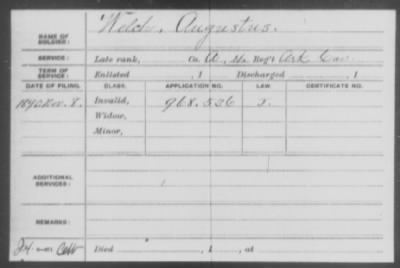 NAME OF SOLDIER: Welch, Augustus.
SERVICE: Late rank, Co. Reg't Ark Cav.
TERM OF SERVICE: Enlisted , 1 Discharged , 1
DATE OF FILING. CLASS. APPLICATION NO. LAW. CERTIFICATE NO.
1890 Nov. 8. Invalid, 968.536
Widow,
Minor,
ADDITIONAL SERVICES:
REMARKS:
Died , 1 , at